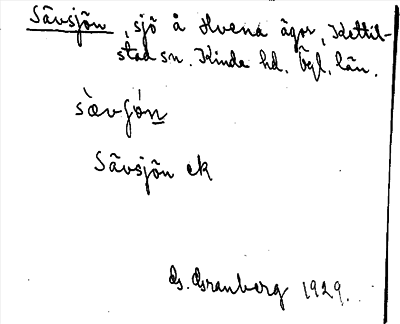 Sävsjön, sjö å Hvena ägor, Kettil-
stad sn. Kinda hd. Ögl. län.
sævʃón
Sävsjön ek
G. Granberg 1929.